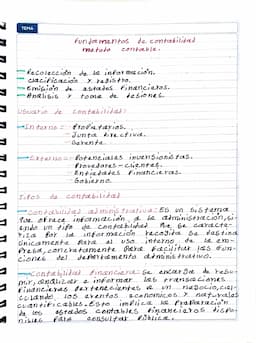 TEMA
Fundamentos de contabilidad
metodo contable.
Recolección de la información.
clacificación y registro.
Emisión de estados financieros.
Análisis y toma de
Usuario de contabilidad:
Interno: Propietarios.
Junta directiva.
Gerente.
Externo: Potenciales inversionistas.
Provedores-clientes.
Entidades financieras.
Gobierno.
Titos de contabilidad
contabilidad administrativa: Es un sistema
que ofrece información a la administración, si-
endo un tipo de contabilidad que se caracte-
riza por la información recojida se destina
únicamente para el uso interno, de la em-
presa, concretamente para facilitar las fun-
ciones del departamento administrativo.
contabilidad financiera: Se encarga de resu-
mir, analizar e informar las transaciones
financieras pertenecientes a un negocio,
los eventos económicos y naturales
cuantificables. Esto implica la preparación
de los estados contables financieros dispo-
nibles para consultar pública.